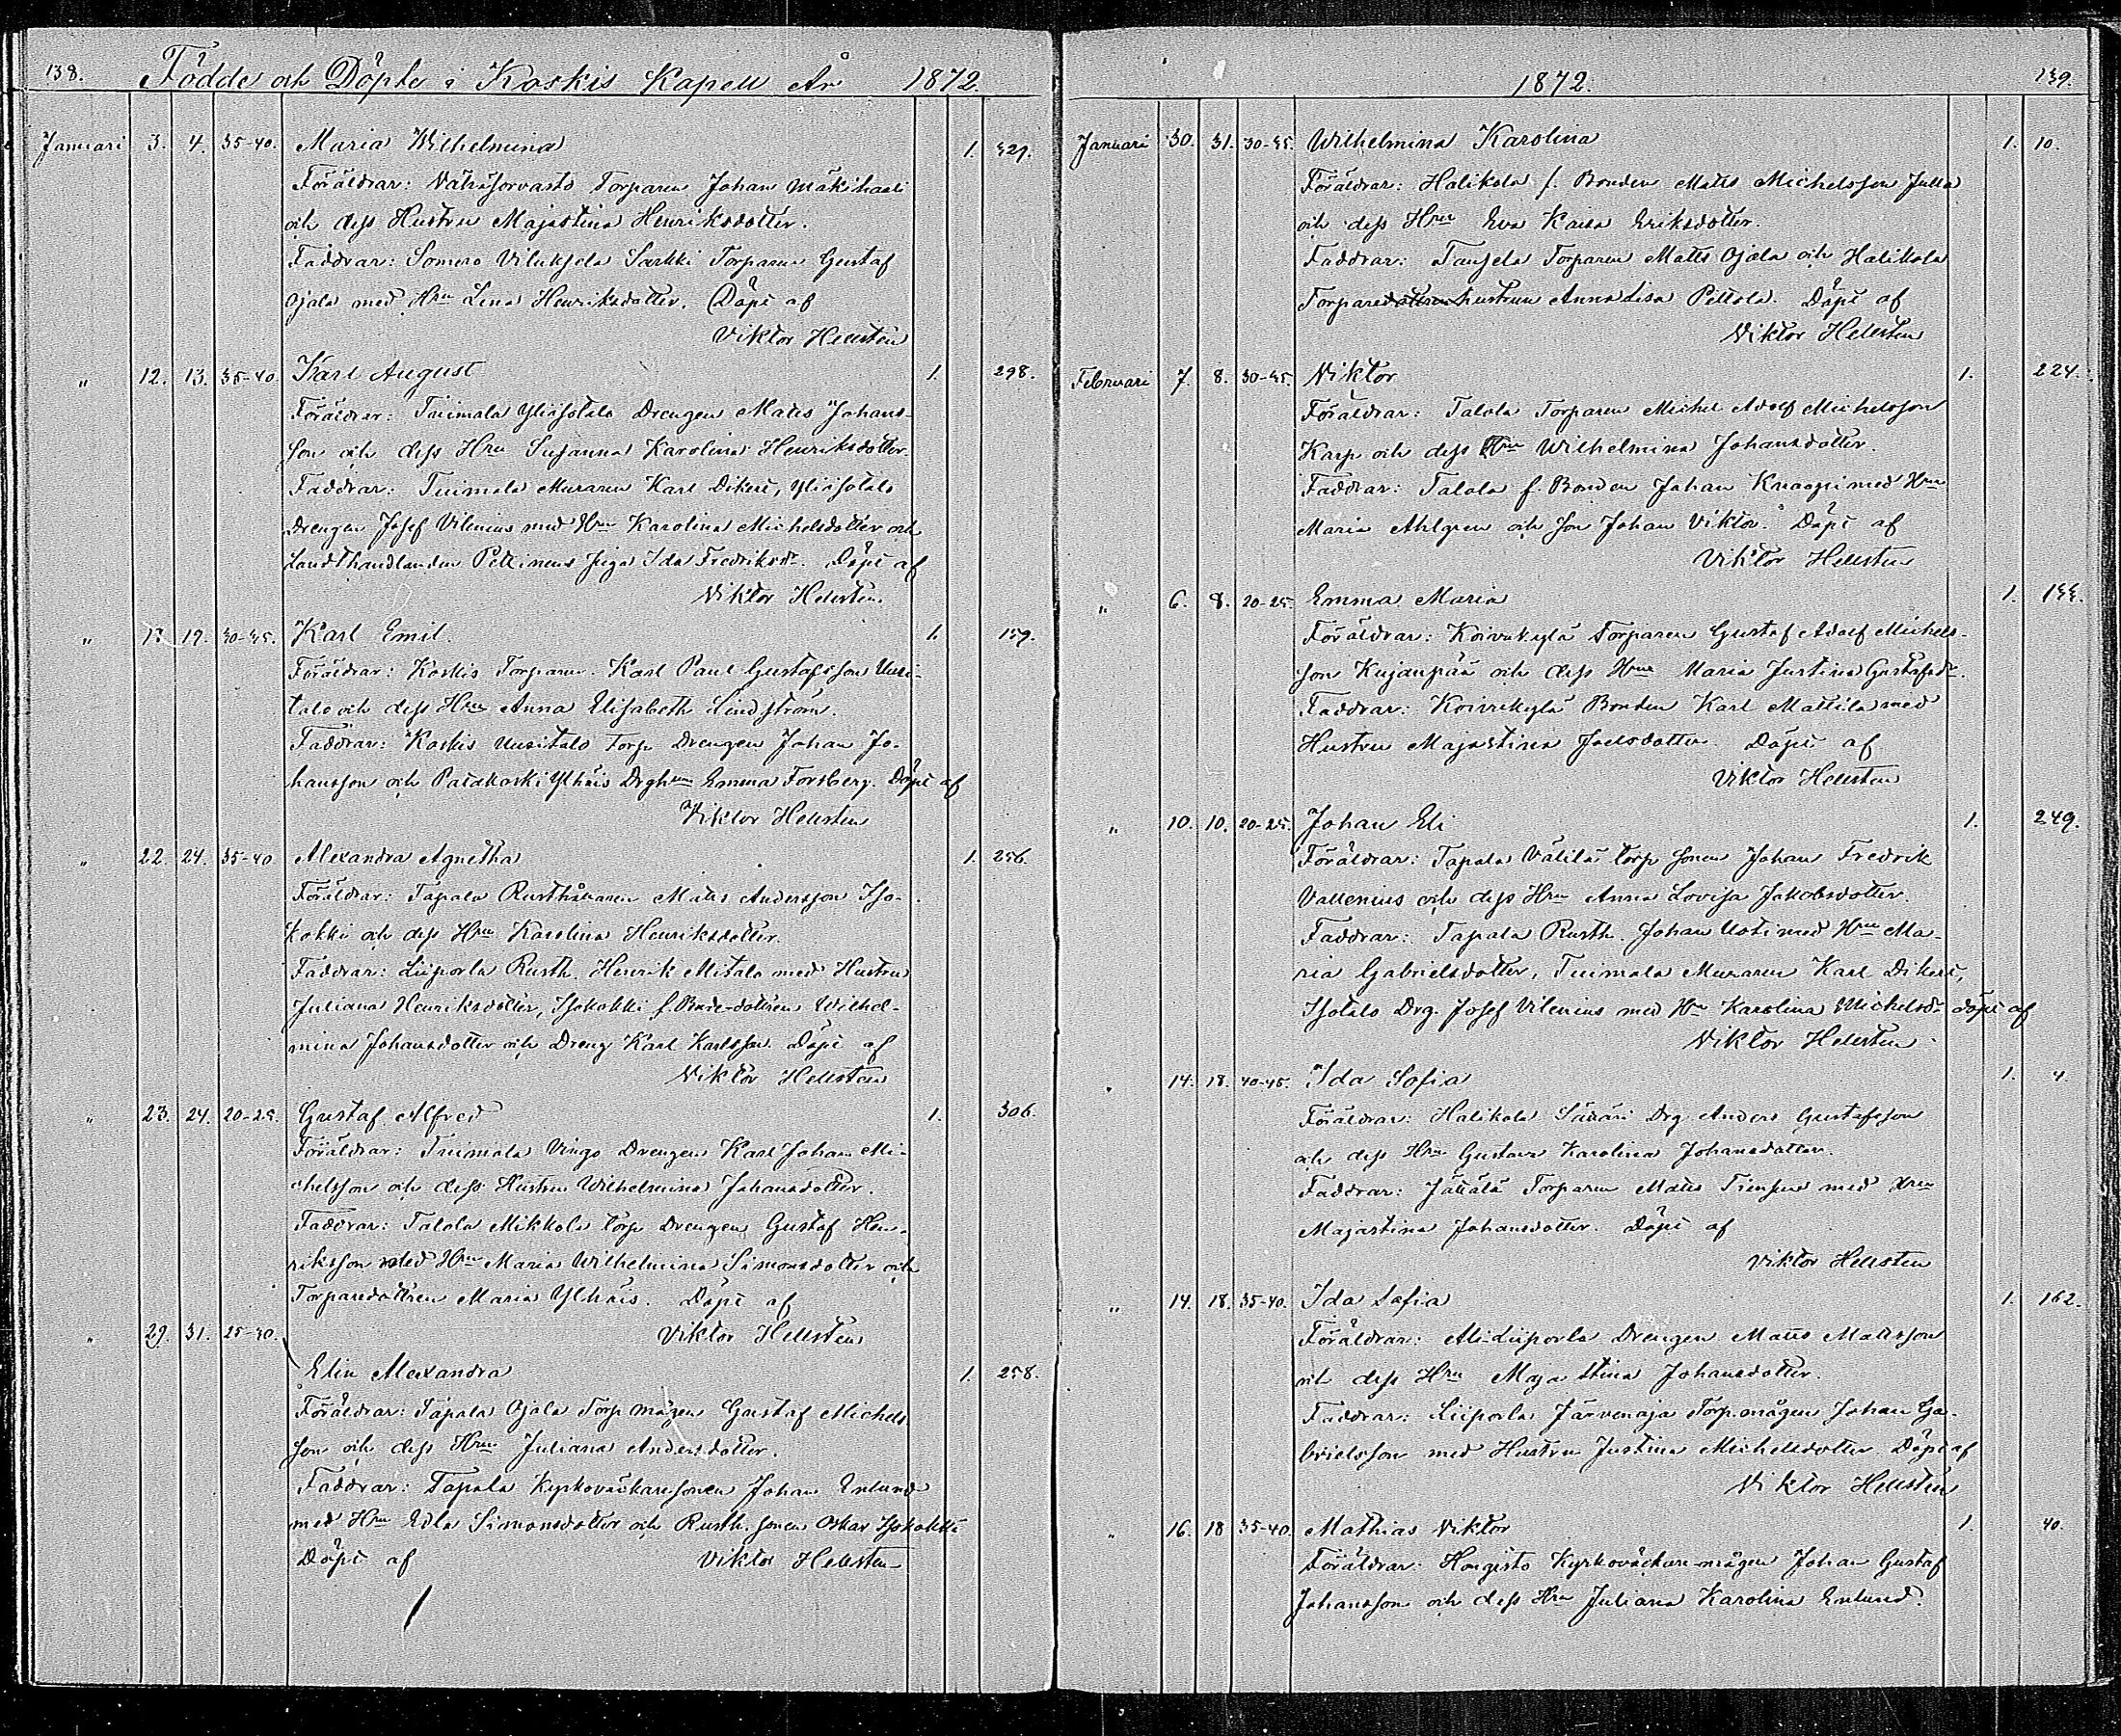 138. Födde och Döpte i Koskis Kapell År 1872.
Januari 3. 4. 35-40. Maria Wilhelmina 1. 329.
Föräldrar: Vähäsorvasto Torparen Johan Mäkihaali
och dess Hustru Majastina Henriksdotter.
Faddrar: Somero Viluksela Sarkki Torparen Gustaf
Ojala med Hru Lena Henriksdotter. Döpt af
Viktor Hellsten
" 12. 13. 35-40. Karl August 1. 298.
Föräldrar: Tuimala Yliisotalo Drengen Matts Johans-
son och dess Hru Susanna Karolina Henriksdotter.
Faddrar: Tuimala Muraren Karl Dikert, Yliisotalo
Drengen Josef Vilenius med Hru Karolina Michelsdotter och
Landthandlanden Pettinens piga Ida Fredriksdr. Döpt af
Viktor Hellsten.
" 17. 19. 30-35. Karl Emil. 1. 159.
Föräldrar: Koskis Torparen Karl Paul Gustafsson Uusi-
talo och dess Hru Anna Elisabeth Lindström.
Faddrar: Koskis Uusitalo Torp. Drengen Johan Jo-
hansson och Patakoski Ylhäis Drghrun Emma Forsberg. Döpt af
Viktor Hellsten
" 22. 24. 35-40 Alexandra Agnetha 1. 256.
Föräldrar: Tapala Rusthållaren Matts Andersson Iso-
kokki och dess Hru Karolina Henriksdotter.
Faddrar: Liipola Rusth. Henrik Mitala med Hustru
Juliana Henriksdotter, Isokokki f. Bonde-dottren Wilhel-
mina Johansdotter och Dreng Karl Karlsson. Döpt af
Viktor Hellsten
" 23. 24. 20-25. Gustaf Alfred 1. 306.
Föräldrar: Tuimala Vingo Drengen Karl Johan Mi-
chelsson och dess Hustru Wilhelmina Johansdotter.
Faddrar: Talola Mikkola torp Drengen Gustaf Hen-
riksson med Hru Maria Wilhelmina Simonsdotter och
Torparedottren Maria Ylhäis. Döpt af
" 29. 31. 25-30. Viktor Hellsten
Elin Alexandra 1. 258.
Föräldrar: Tapala Ojala Torp mågen Gustaf Michels
son och dess Hru Juliana Andersdotter.
Faddrar: Tapala Kyrkoväckaresonen Johan Enlund
med Hru Edla Simonsdotter och Rusth. sonen Oskar Isokokki
Döpt af Viktor Hellsten
1872. 139.
Januari 30. 31. 30-35. Wilhelmina Karolina 1. 10.
Föräldrar: Halikola f. Bonden Matts Michelsson Julla
och dess Hru Eva Kaisa Eriksdotter.
Faddrar: Tausela Torparen Matts Ojala och Halikola
Torparedottren hustrun Anna Lisa Pettola. Döpt af
Viktor Hellsten
Februari 7. 8. 30-35. Viktor 1. 224.
Föräldrar: Talola Torparen Michel Adolf Michelsson
Karp och dess Hru Wilhelmina Johansdotter.
Faddrar: Talola f. Bonden Johan Knaapi med Hru
Maria Ahlgren och son Johan Viktor. Döpt af
Viktor Hellsten
" 6. 8. 20-25. Emma Maria 1. 133.
Föräldrar: Koivukylä Torparen Gustaf Adolf Michels-
son Kujanpää och dess Hru Maria Justina Gustafsdr.
Faddrar: Koivukylä Bonden Karl Mattila med
Hustru Majastina Joelsdotter. Döpt af
Viktor Hellsten
" 10. 10. 20-25. Johan Eli 1. 249.
Föräldrar: Tapala Välilä torp sonen Johan Fredrik
Vallenius och dess Hru Anna Lovisa Jakobsdotter.
Faddrar: Tapala Rusth. Johan Uoti med Hru Ma-
ria Gabrielsdotter, Tuimala Muraren Karl Dikert,
Isotalo Drg. Josef Vilenius med Hru Karolina Michelsdr döpt af
Viktor Hellsten
" 14. 18. 40-45. Ida Sofia 1. 4.
Föräldrar: Halikola Drg Anders Gustafsson
och dess Hru Gustava Karolina Johansdotter.
Faddrar: Jättälä Torparen Matts med Hru
Majastina Johansdotter. Döpt af
Viktor Hellsten
" 14. 18. 35-40. Ida Sofia 1. 162.
Föräldrar: Ali-Liiporla Drengen Matts Mattsson
och dess Hru Maja Stina Johansdotter.
Faddrar: Liiporla Järvenoja Torp.mågen Johan Ga-
brielsson med Hustru Justina Michelsdotter Döpt af
Viktor Hellsten
" 16. 18 35-40. Mathias Viktor 1. 40.
Föräldrar: Hongisto Kyrkoväckare-mågen Johan Gustaf
Johansson och dess Hru Juliana Karolina Enlund.